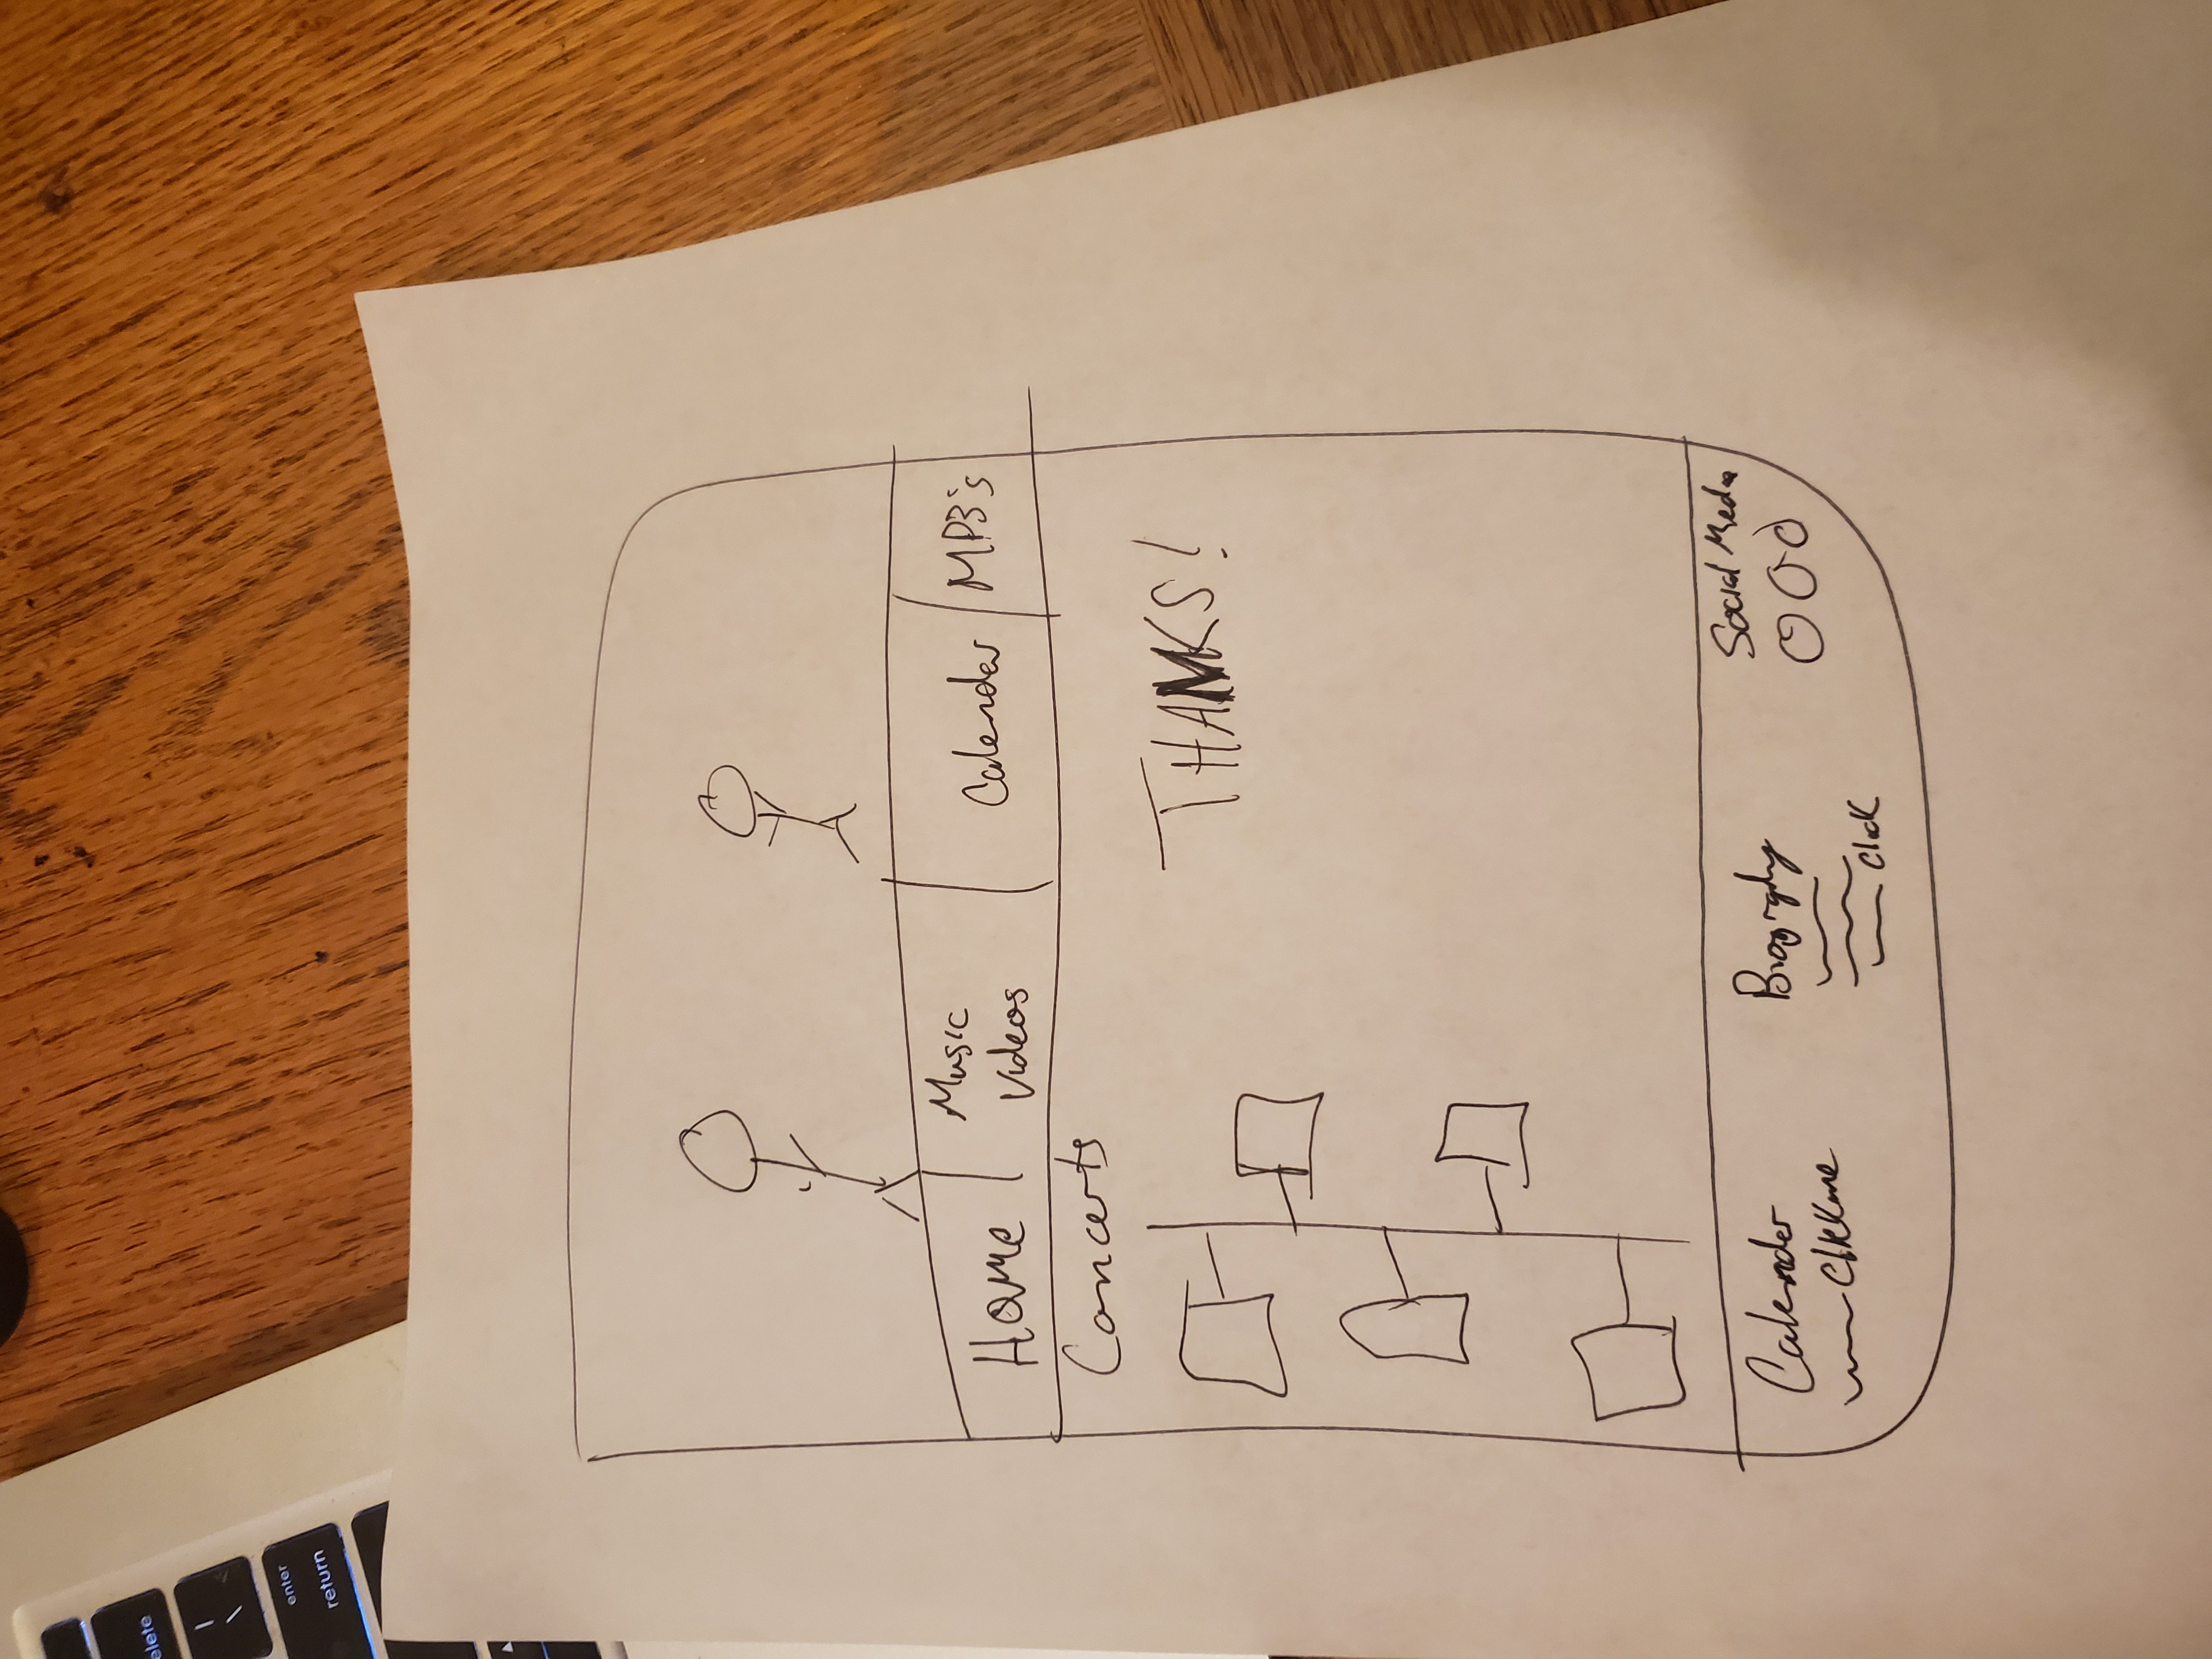 elete
\
enter
return
Home
Music
Videos
Calender
MP3's
Concerts
THANKS!
Calender
Clickme
Biography
Click
Social Media